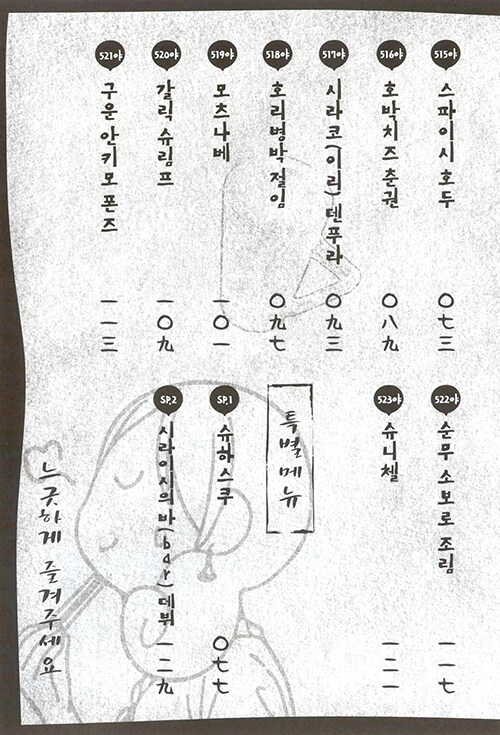 515야
스파이시 호두
〇七三
516야
호박치즈춘권
〇八九
517야
시라코(이리)덴푸라
〇九三
518야
호리병박 절임
〇九七
519야
모츠나베
一〇一
520야
갈릭 슈림프
一〇九
521야
구운 안키모 폰즈
一一三
522야
순무 소보로 조림
一一七
523야
슈니첼
一二一
특별 메뉴
SP.1
슈하스쿠
〇七七
SP.2
시라이시의 바(bar) 데뷔
一二九
느긋하게 즐겨주세요